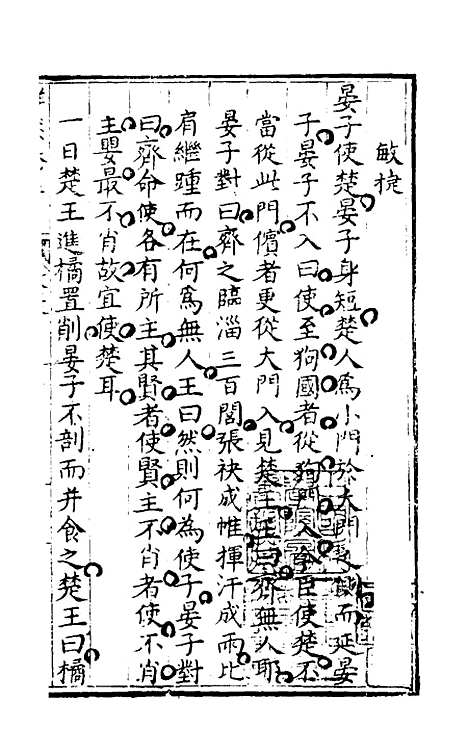 敏捷
晏子使楚晏子身短楚人爲小門於大門之側而延晏
子晏子不入曰使至狗國者從狗門入今臣使楚不
當從此門儐者更從大門入見楚王王曰齊無人耶
晏子對曰齊之臨淄三百閭張袂成帷揮汗成雨比
肩繼踵而在何爲無人王曰然則何為使子晏子對
曰齊命使各有所主其賢者使賢主不肖者使不肖
主嬰最不肖故宜使楚耳
一日楚王進橘置削晏子不剖而并食之楚王曰橘